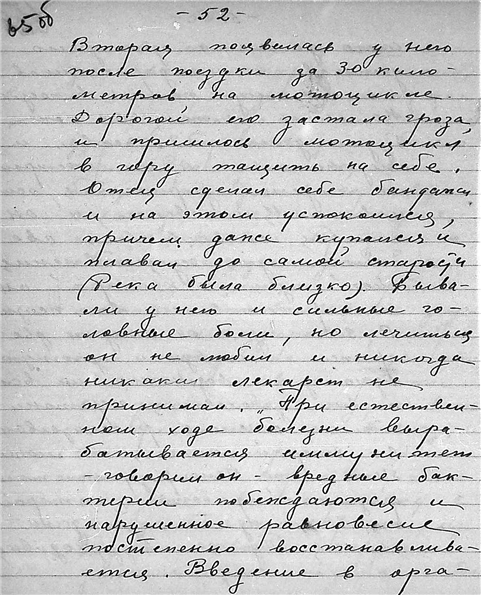 65об
- 52 -
Вторая появилась у него
после поездки за 30 кило-
метров на мотоцикле.
Дорогой его застала гроза,
и пришлось мотоцикл
в гору тащить на себе.
Отец сделал себе бандаж
и на этом успокоился,
причем даже купался и
плавал до самой старости
(Река была близко). Быва-
ли у него и сильные го-
ловные боли, но лечиться
он не любил и никогда
никаких лекарств не
принимал. „При естествен-
ном ходе болезни выра-
батывается иммунитет
- говорил он - вредные бак-
терии побеждаются и
нарушенное равновесие
постепенно восстанавлива-
ется. Введение в орга-